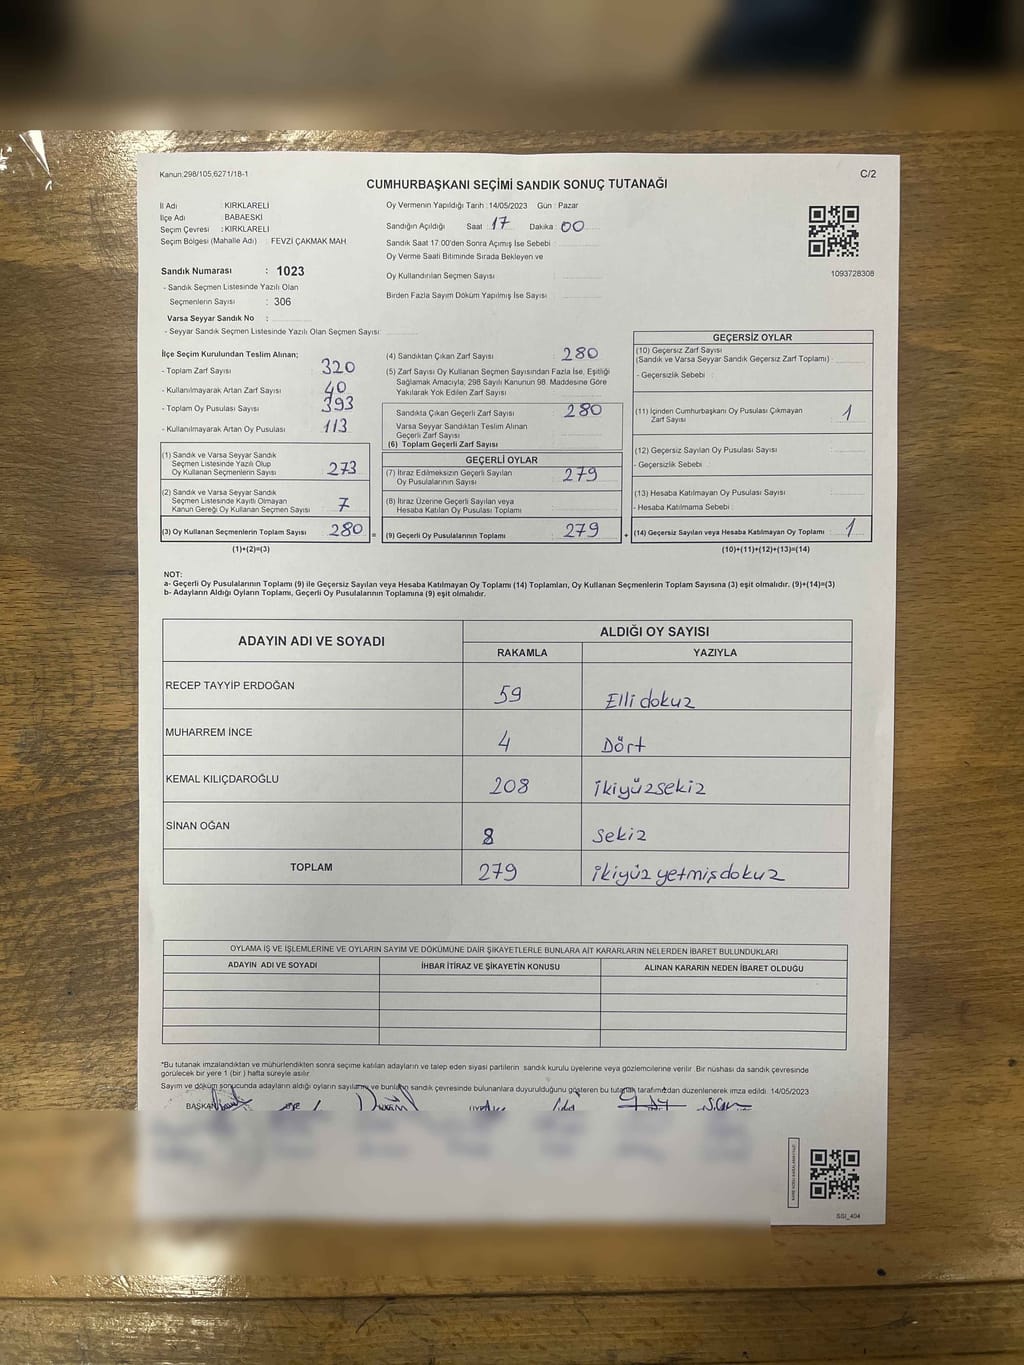 Kanun:298/105,6271/18-1
C/2
CUMHURBAŞKANI SEÇİMİ SANDIK SONUÇ TUTANAĞI
İl Adı : KIRKLARELİ
İlçe Adı : BABAESKİ
Seçim Çevresi : KIRKLARELİ
Seçim Bölgesi (Mahalle Adı) : FEVZİ ÇAKMAK MAH
Oy Vermenin Yapıldığı Tarih :14/05/2023 Gün : Pazar
Sandığın Açıldığı Saat : 17 Dakika : 00
Sandık Saat 17:00'den Sonra Açımış İse Sebebi :
Oy Verme Saati Bitiminde Sırada Bekleyen ve
Oy Kullandırılan Seçmen Sayısı :
Birden Fazla Sayım Döküm Yapılmış İse Sayısı :
1093728308
Sandık Numarası : 1023
- Sandık Seçmen Listesinde Yazılı Olan
Seçmenlerin Sayısı : 306
Varsa Seyyar Sandık No :
- Seyyar Sandık Seçmen Listesinde Yazılı Olan Seçmen Sayısı:
İlçe Seçim Kurulundan Teslim Alınan;
- Toplam Zarf Sayısı : 320
- Kullanılmayarak Artan Zarf Sayısı : 40
- Toplam Oy Pusulası Sayısı : 393
- Kullanılmayarak Artan Oy Pusulası : 113
(1) Sandık ve Varsa Seyyar Sandık
Seçmen Listesinde Yazılı Olup
Oy Kullanan Seçmenlerin Sayısı : 273
(2) Sandık ve Varsa Seyyar Sandık
Seçmen Listesinde Kayıtlı Olmayan
Kanun Gereği Oy Kullanan Seçmen Sayısı : 7
(3) Oy Kullanan Seçmenlerin Toplam Sayısı : 280
(1)+(2)=(3)
(4) Sandıktan Çıkan Zarf Sayısı : 280
(5) Zarf Sayısı Oy Kullanan Seçmen Sayısından Fazla İse, Eşitliği
Sağlamak Amacıyla; 298 Sayılı Kanunun 98. Maddesine Göre
Yakılarak Yok Edilen Zarf Sayısı :
Sandıkta Çıkan Geçerli Zarf Sayısı : 280
Varsa Seyyar Sandıktan Teslim Alınan
Geçerli Zarf Sayısı :
(6) Toplam Geçerli Zarf Sayısı :
GEÇERLİ OYLAR
(7) İtiraz Edilmeksizin Geçerli Sayılan
Oy Pusulalarının Sayısı : 279
(8) İtiraz Üzerine Geçerli Sayılan veya
Hesaba Katılan Oy Pusulası Toplamı :
= (9) Geçerli Oy Pusulalarının Toplamı : 279 +
GEÇERSİZ OYLAR
(10) Geçersiz Zarf Sayısı
(Sandık ve Varsa Seyyar Sandık Geçersiz Zarf Toplamı) :
- Geçersizlik Sebebi :
(11) İçinden Cumhurbaşkanı Oy Pusulası Çıkmayan
Zarf Sayısı : 1
(12) Geçersiz Sayılan Oy Pusulası Sayısı :
- Geçersizlik Sebebi :
(13) Hesaba Katılmayan Oy Pusulası Sayısı :
- Hesaba Katılmama Sebebi :
(14) Geçersiz Sayılan veya Hesaba Katılmayan Oy Toplamı : 1
(10)+(11)+(12)+(13)=(14)
NOT:
a- Geçerli Oy Pusulalarının Toplamı (9) ile Geçersiz Sayılan veya Hesaba Katılmayan Oy Toplamı (14) Toplamları, Oy Kullanan Seçmenlerin Toplam Sayısına (3) eşit olmalıdır. (9)+(14)=(3)
b- Adayların Aldığı Oyların Toplamı, Geçerli Oy Pusulalarının Toplamına (9) eşit olmalıdır.
ADAYIN ADI VE SOYADI
ALDIĞI OY SAYISI
RAKAMLA YAZIYLA
RECEP TAYYİP ERDOĞAN 59 Elli dokuz
MUHARREM İNCE 4 Dört
KEMAL KILIÇDAROĞLU 208 ikiyüzsekiz
SİNAN OĞAN 8 sekiz
TOPLAM 279 ikiyüz yetmişdokuz
OYLAMA İŞ VE İŞLEMLERİNE VE OYLARIN SAYIM VE DÖKÜMÜNE DAİR ŞİKAYETLERLE BUNLARA AİT KARARLARIN NELERDEN İBARET BULUNDUKLARI
ADAYIN ADI VE SOYADI İHBAR İTİRAZ VE ŞİKAYETİN KONUSU ALINAN KARARIN NEDEN İBARET OLDUĞU
*Bu tutanak imzalandıktan ve mühürlendikten sonra seçime katılan adayların ve talep eden siyasi partilerin sandık kurulu üyelerine veya gözlemcilerine verilir. Bir nüshası da sandık çevresinde
görülecek bir yere 1 (bir ) hafta süreyle asılır.
Sayım ve döküm sonucunda adayların aldığı oyların sayılarını ve bunların sandık çevresinde bulunanlara duyurulduğunu gösteren bu tutanak tarafımızdan düzenlenerek imza edildi. 14/05/2023
BAŞKAN
SSI_404